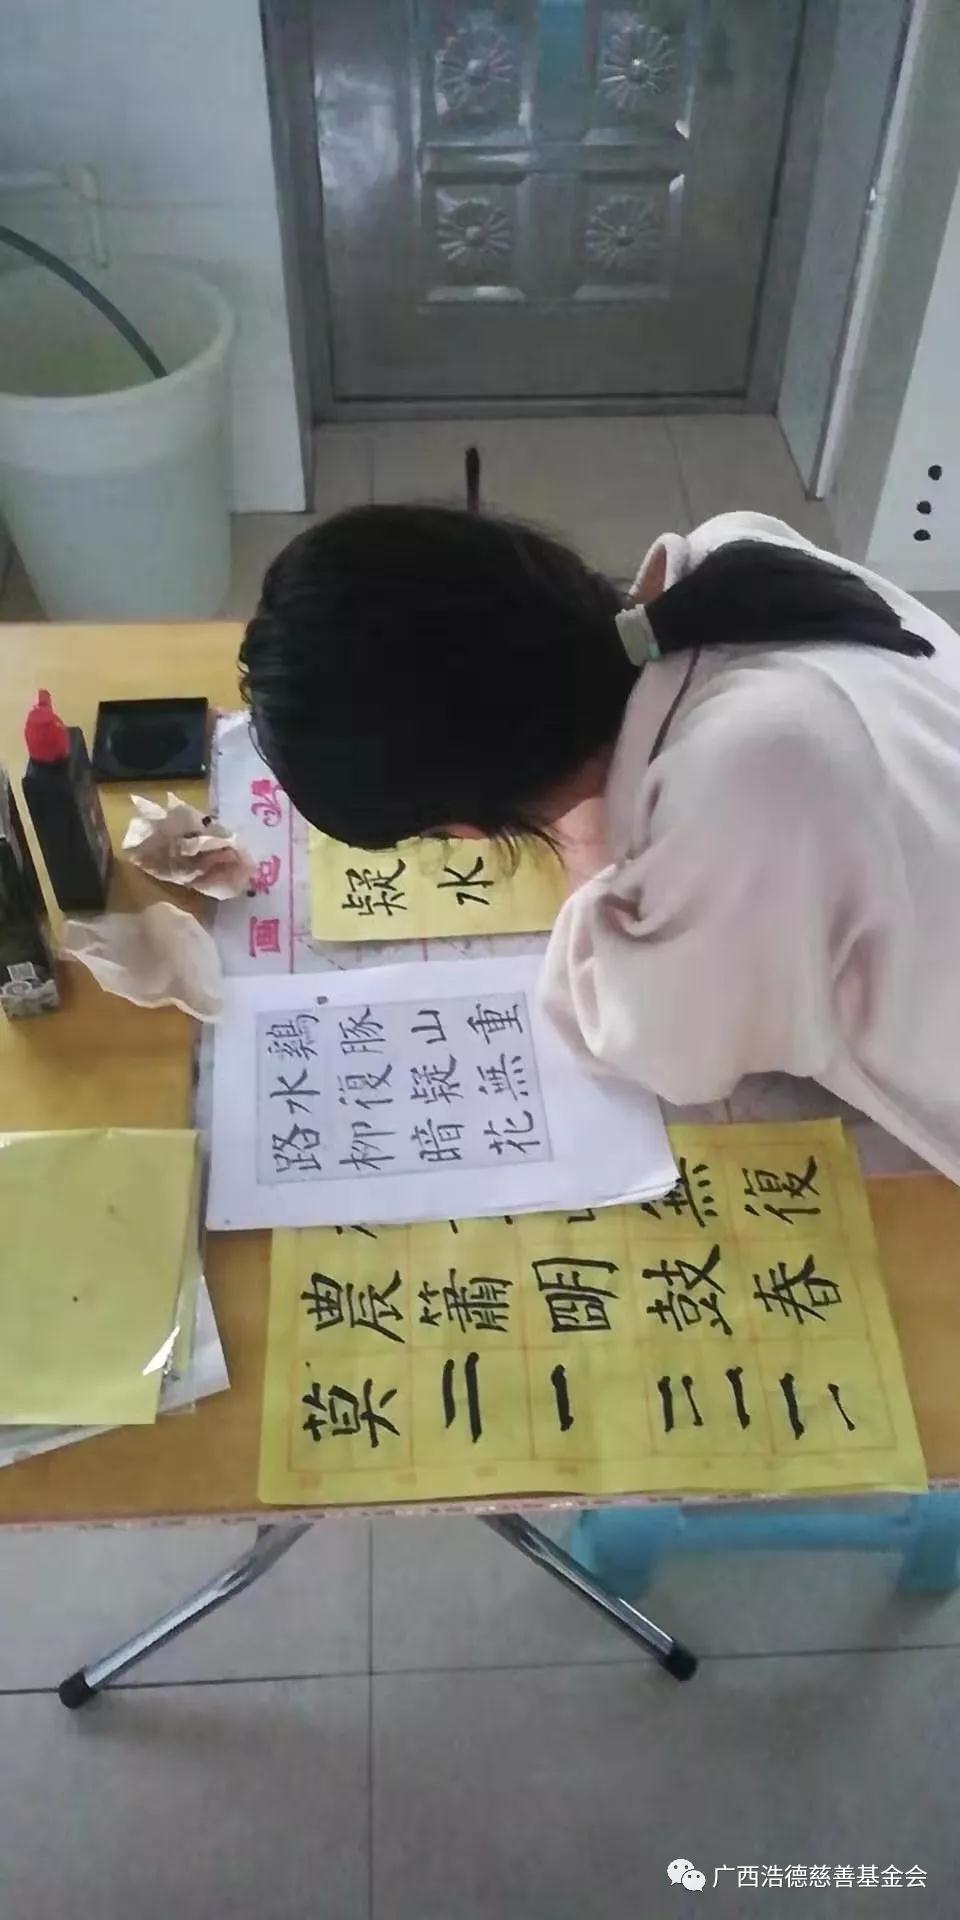 疑水
鷄豚山重
水復疑無
路柳暗花
無復
農簫明鼓春
莫二一二一一
广西浩德慈善基金会